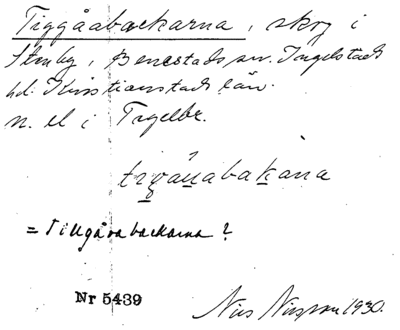 Tiggåabackarna, skog i
Stenby, Benestads sn. Ingelstads
hd. Kristianstads län.
n. el i Tegelbr.
= Tillgåvabackarna?
Nr 5439
Nils Nilsson 1930.